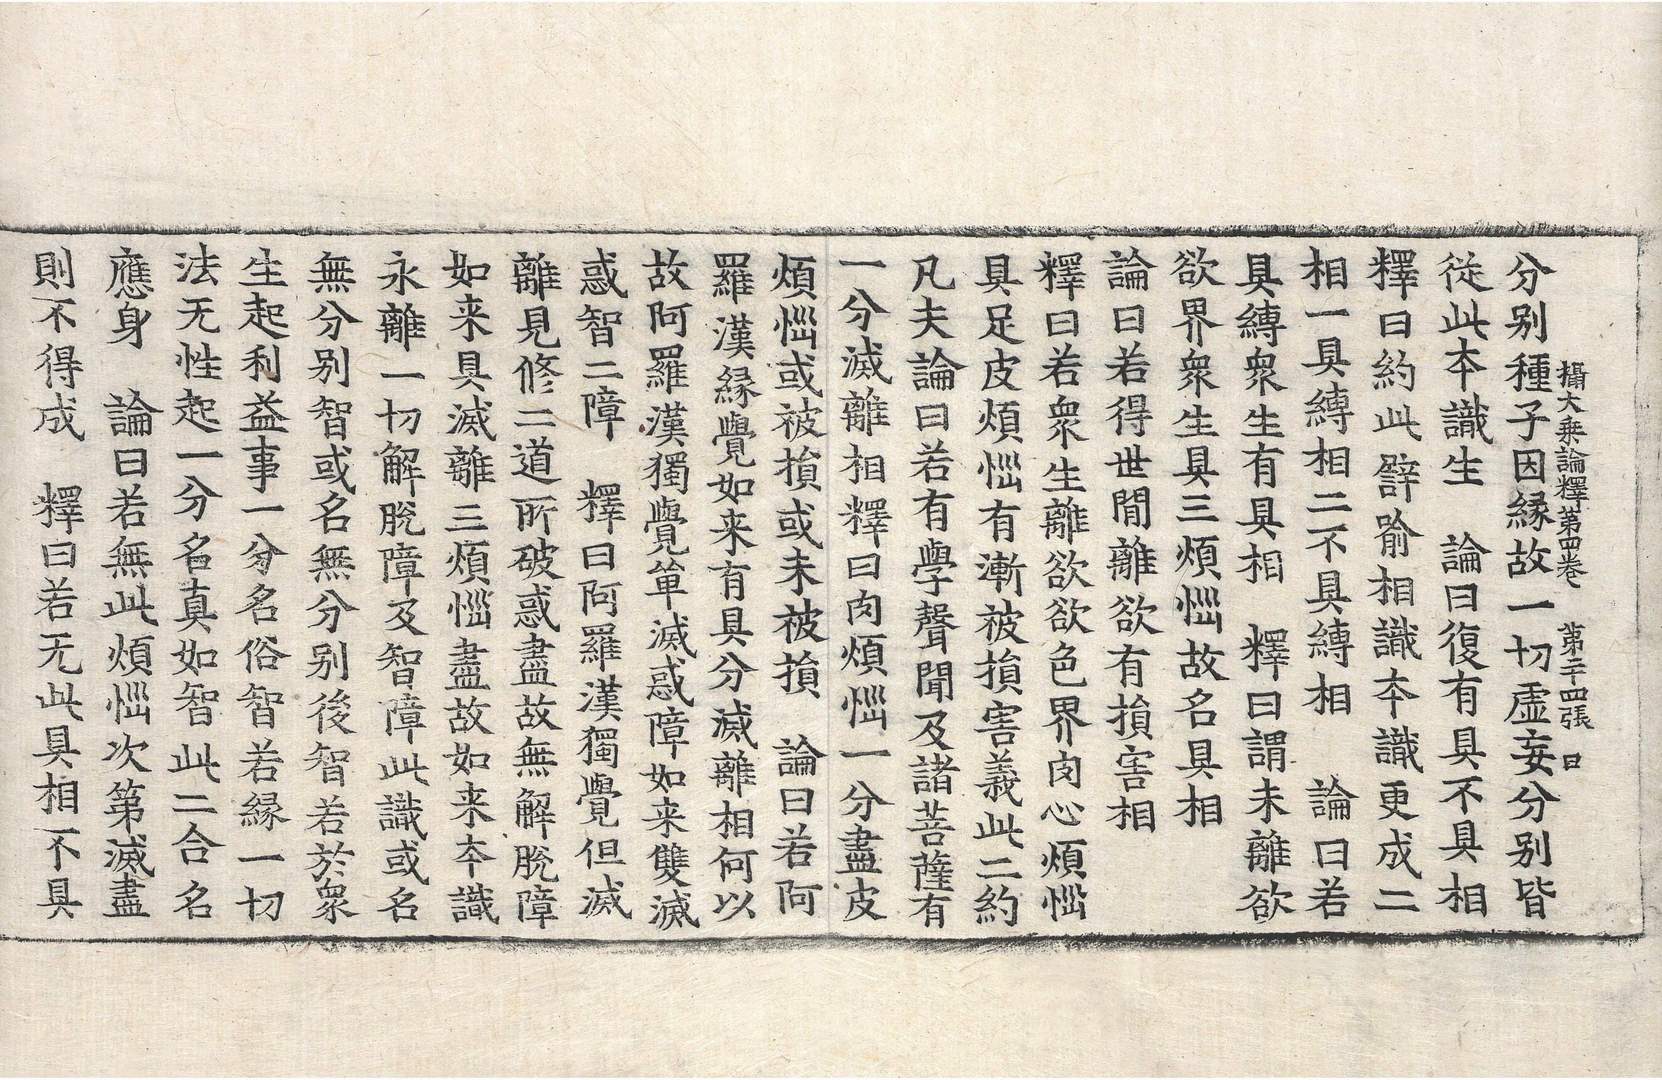 攝大乘論釋第四卷 第二十四張 曰
分别種子因縁故一切虛妄分别皆
從此本識生 論曰復有具不具相
釋曰約此譬喻相識本識更成二
相一具縛相二不具縛相 論曰若
具縛衆生有具相 釋曰謂未離欲
欲界衆生具三煩惱故名具相
論曰若得世間離欲有損害相
釋曰若衆生離欲欲色界肉心煩惱
具足皮煩惱有漸被損害義此二約
凡夫論曰若有學聲聞及諸菩薩有
一分滅離相釋曰肉煩惱一分盡皮
煩惱或被損或未被損 論曰若阿
羅漢縁覺如来有具分滅離相何以
故阿羅漢獨覺單滅惑障如来雙滅
惑智二障 釋曰阿羅漢獨覺但滅
離見修二道所破惑盡故無解脫障
如来具滅離三煩惱盡故如来本識
永離一切解脫障及智障此識或名
無分别智或名無分别後智若於衆
生起利益事一分名俗智若縁一切
法无性起一分名真如智此二合名
應身 論曰若無此煩惱次第滅盡
則不得成 釋曰若无此具相不具